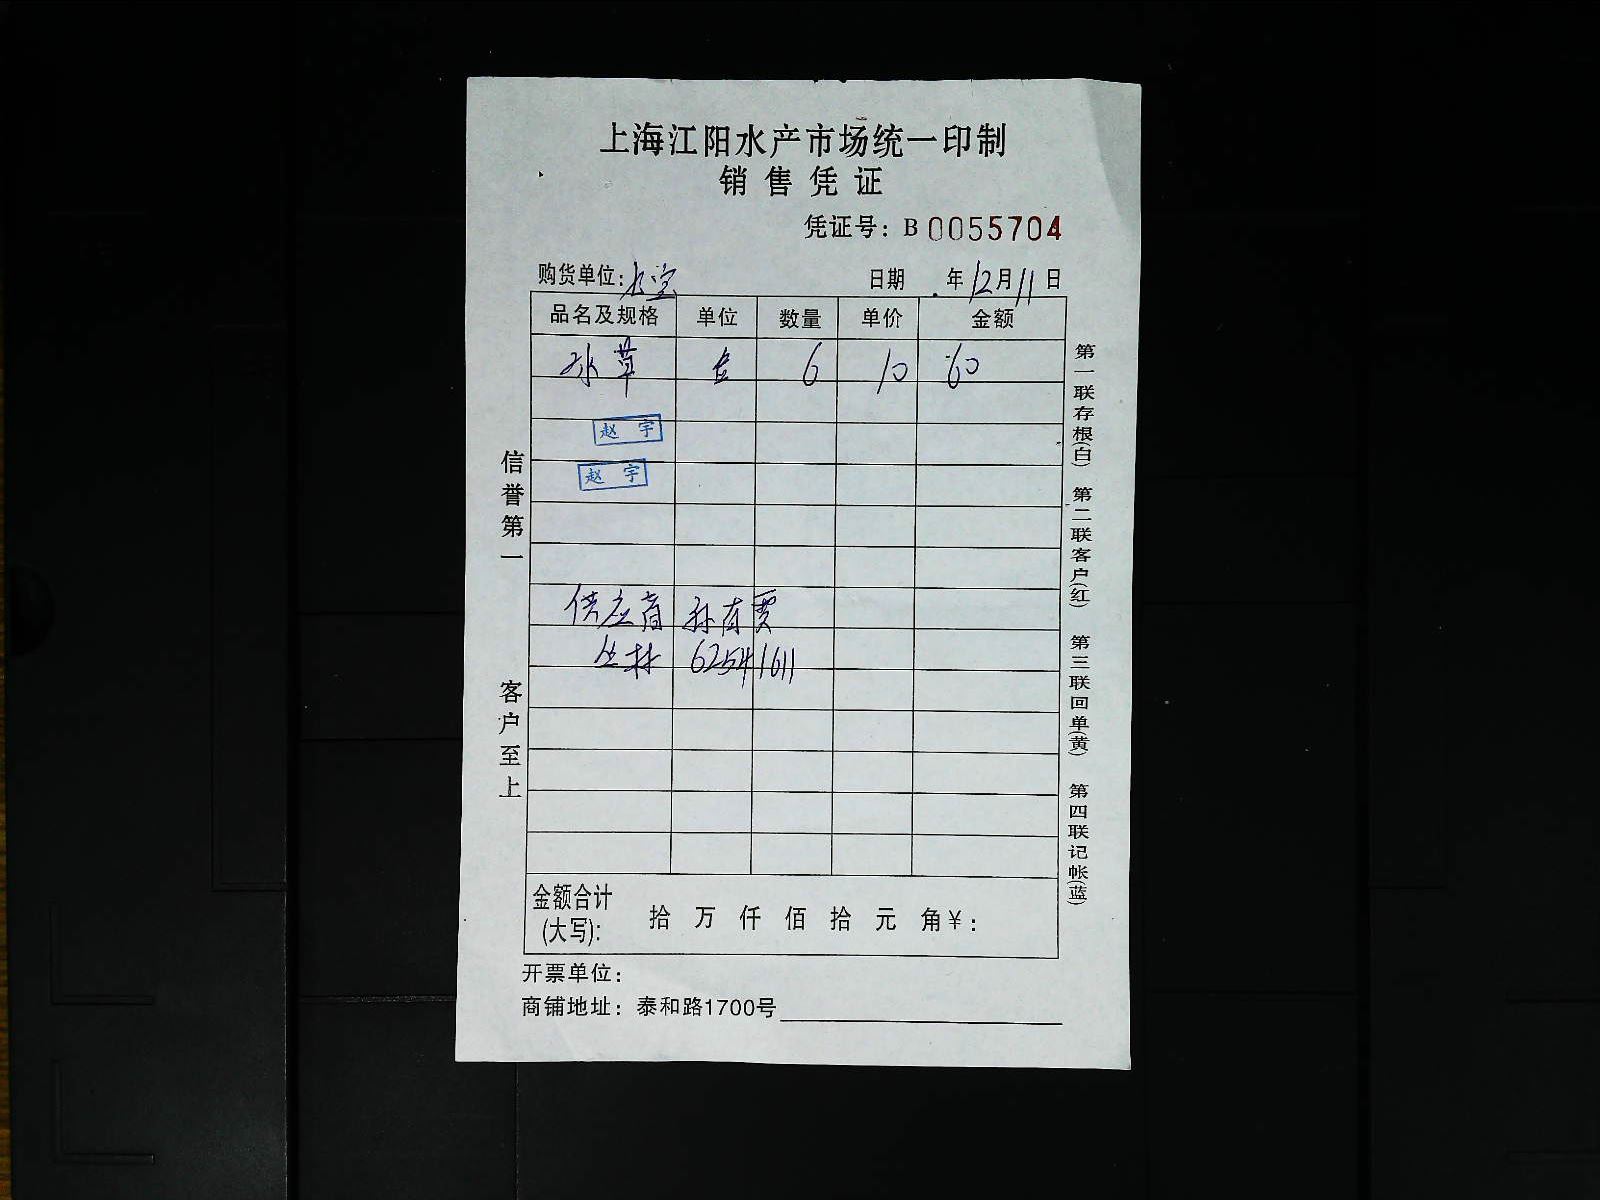 上海江阳水产市场统一印制
销售凭证
凭证号：B 0055704
购货单位： 日期 年12月11日
品名及规格 单位 数量 单价 金额
水草 6 10 60
赵宇
赵宇
供应商 孙有贾
丛林 62541611
金额合计(大写)： 拾 万 仟 佰 拾 元 角￥：
开票单位：
商铺地址：泰和路1700号
信誉第一 客户至上
第一联存根(白) 第二联客户(红) 第三联回单(黄) 第四联记帐(蓝)